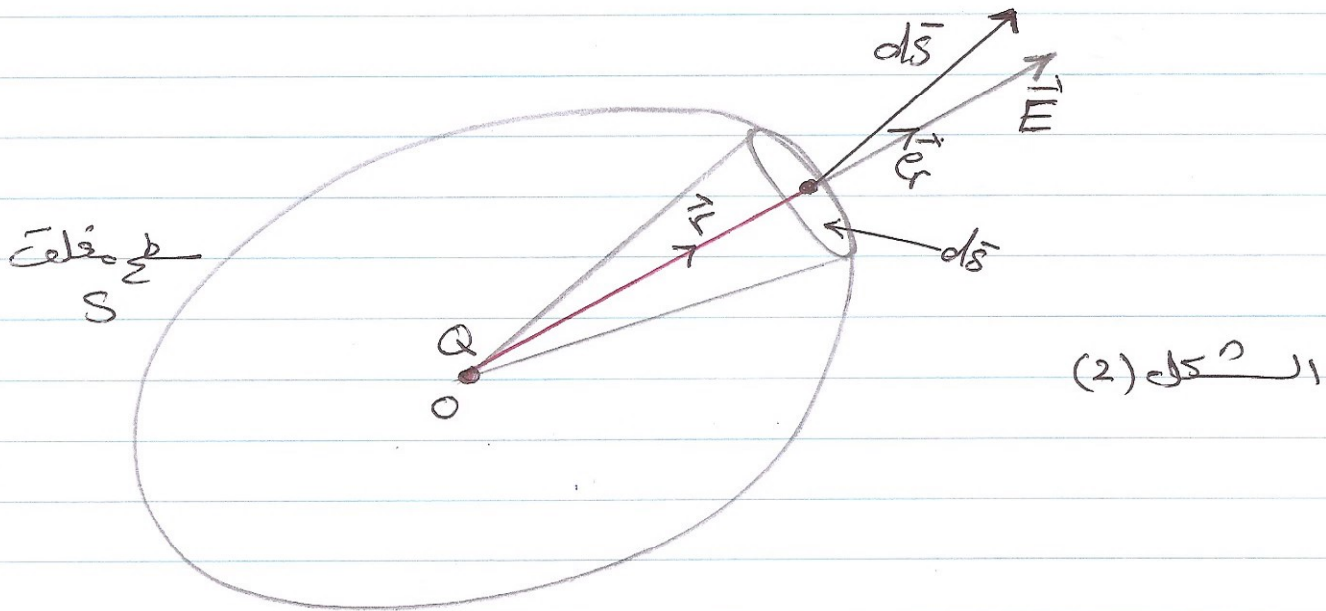 ds̄
E⃗
e⃗r
r⃗
ds̄
سطح مغلق
S
Q
O
الشكل (2)